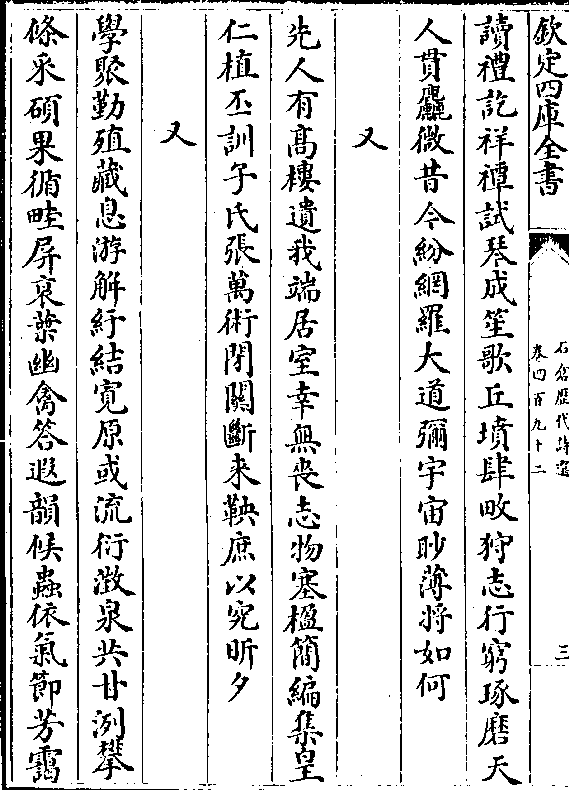 欽定四庫全書
石倉歷代詩選
卷四百九十二
三
讀禮訖祥禫試琴成笙歌丘墳肆畋狩志行窮琢磨天
人貫麤微昔今紛網羅大道彌宇宙眇薄將如何
又
先人有髙樓遺我端居室幸無喪志物塞楹簡編集皇
仁植丕訓子氏張萬術閉關斷来鞅庶以究昕夕
又
學聚勤殖藏息游解紆結寛原或流衍激泉共甘洌攀
條采碩果循畦屏衰葉幽禽答遐韻候蟲依氣節芳靄